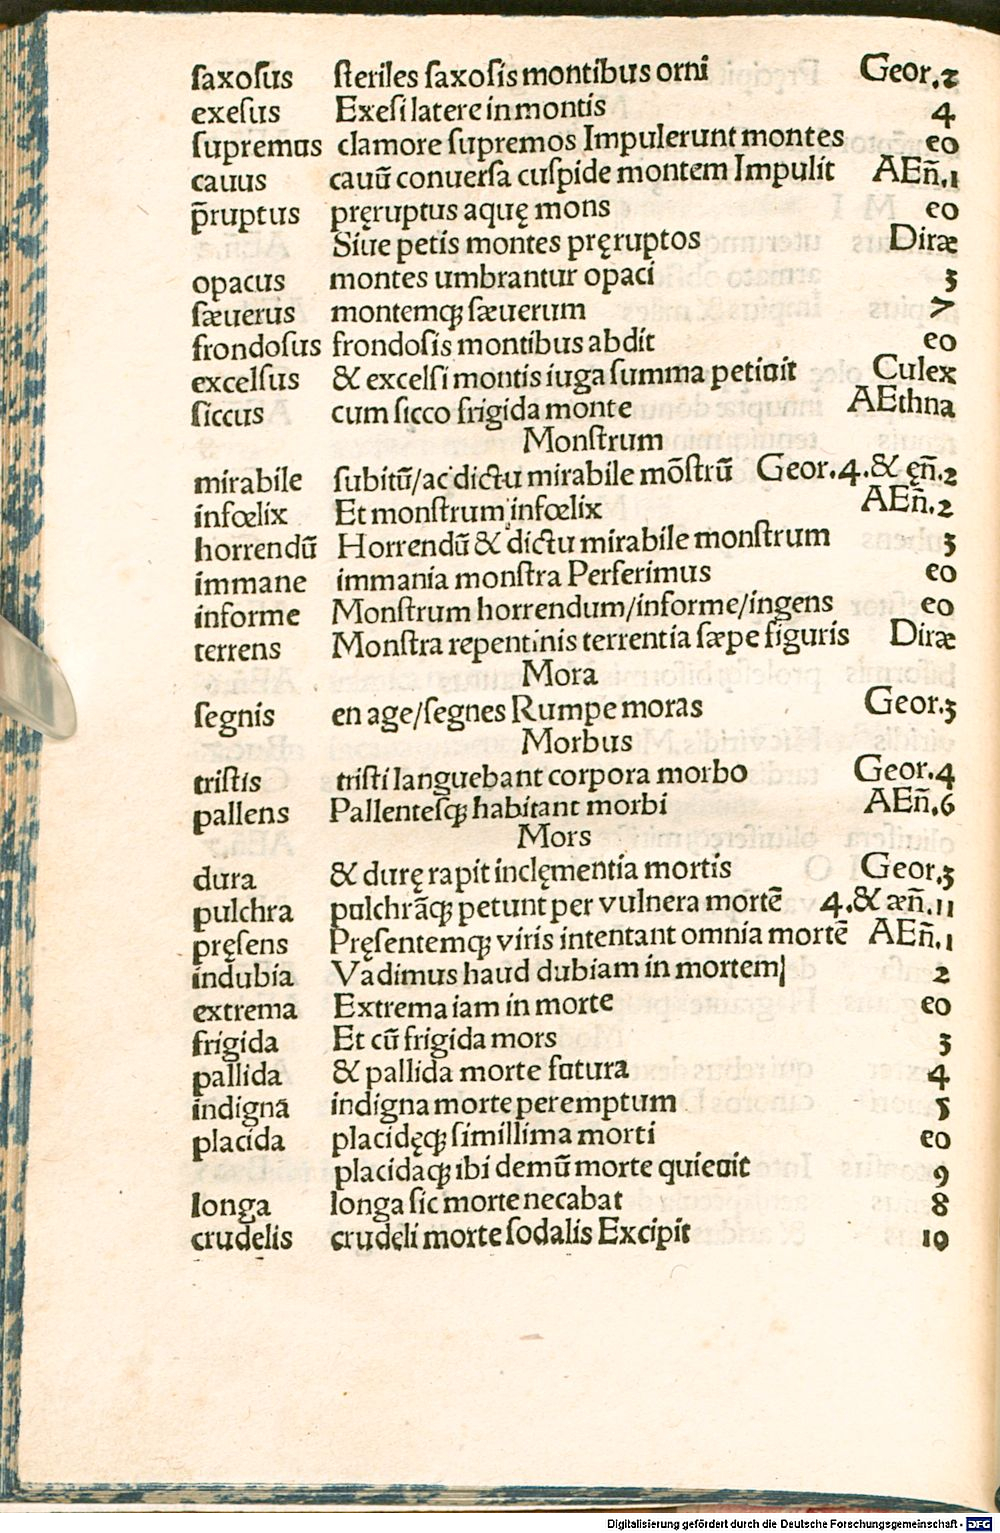 ſaxoſus ſteriles ſaxoſis montibus orni Geor.2
exeſus Exeſi latere in montis 4
ſupremus clamore ſupremos Impulerunt montes eo
cauus cauū conuerſa cuſpide montem Impulit AEñ.1
p̄ruptus pręruptus aquę mons eo
Siue petis montes pręruptos Diræ
opacus montes umbrantur opaci 3
ſæuerus montemq; ſæuerum 7
frondoſus frondoſis montibus abdit eo
excelſus & excelſi montis iuga ſumma petiuit Culex
ſiccus cum ſicco frigida monte AEthna
Monſtrum
mirabile ſubitū/ac dictu mirabile mōſtrū Geor.4.& ęñ.2
infœlix Et monſtrum infœlix AEñ.2
horrendū Horrendū & dictu mirabile monſtrum 3
immane immania monſtra Perferimus eo
informe Monſtrum horrendum/informe/ingens eo
terrens Monſtra repentinis terrentia ſæpe figuris Diræ
Mora
ſegnis en age/ſegnes Rumpe moras Geor.3
Morbus
triſtis triſti languebant corpora morbo Geor.4
pallens Pallenteſq; habitant morbi AEñ.6
Mors
dura & durę rapit inclęmentia mortis Geor.3
pulchra pulchrāq; petunt per vulnera mortē 4.& æñ.11
pręſens Pręſentemq; viris intentant omnia mortē AEñ.1
indubia Vadimus haud dubiam in mortem 2
extrema Extrema iam in morte eo
frigida Et cū frigida mors 3
pallida & pallida morte futura 4
indignā indigna morte peremptum 5
placida placidęq; ſimillima morti eo
placidaq; ibi demū morte quieuit 9
longa longa ſic morte necabat 8
crudelis crudeli morte ſodalis Excipit 10
Digitalisierung gefördert durch die Deutsche Forschungsgemeinschaft - DFG